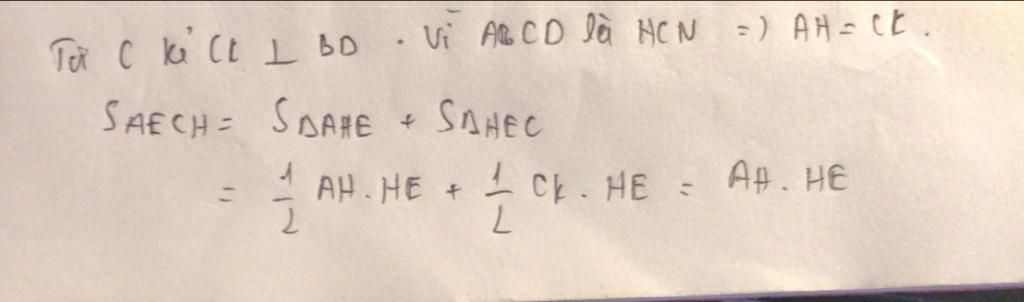 Từ C kẻ Ck ⊥ BD. Vì ABCD là HCN => AH = Ck.
SAECH = SΔAHE + SΔHEC
= 1/2 AH. HE + 1/2 Ck. HE = AH. HE